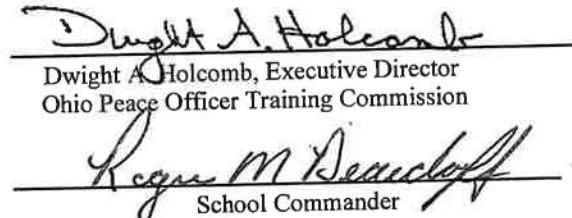 Dwight A. Holcomb
Dwight A. Holcomb, Executive Director
Ohio Peace Officer Training Commission
M
School Commander